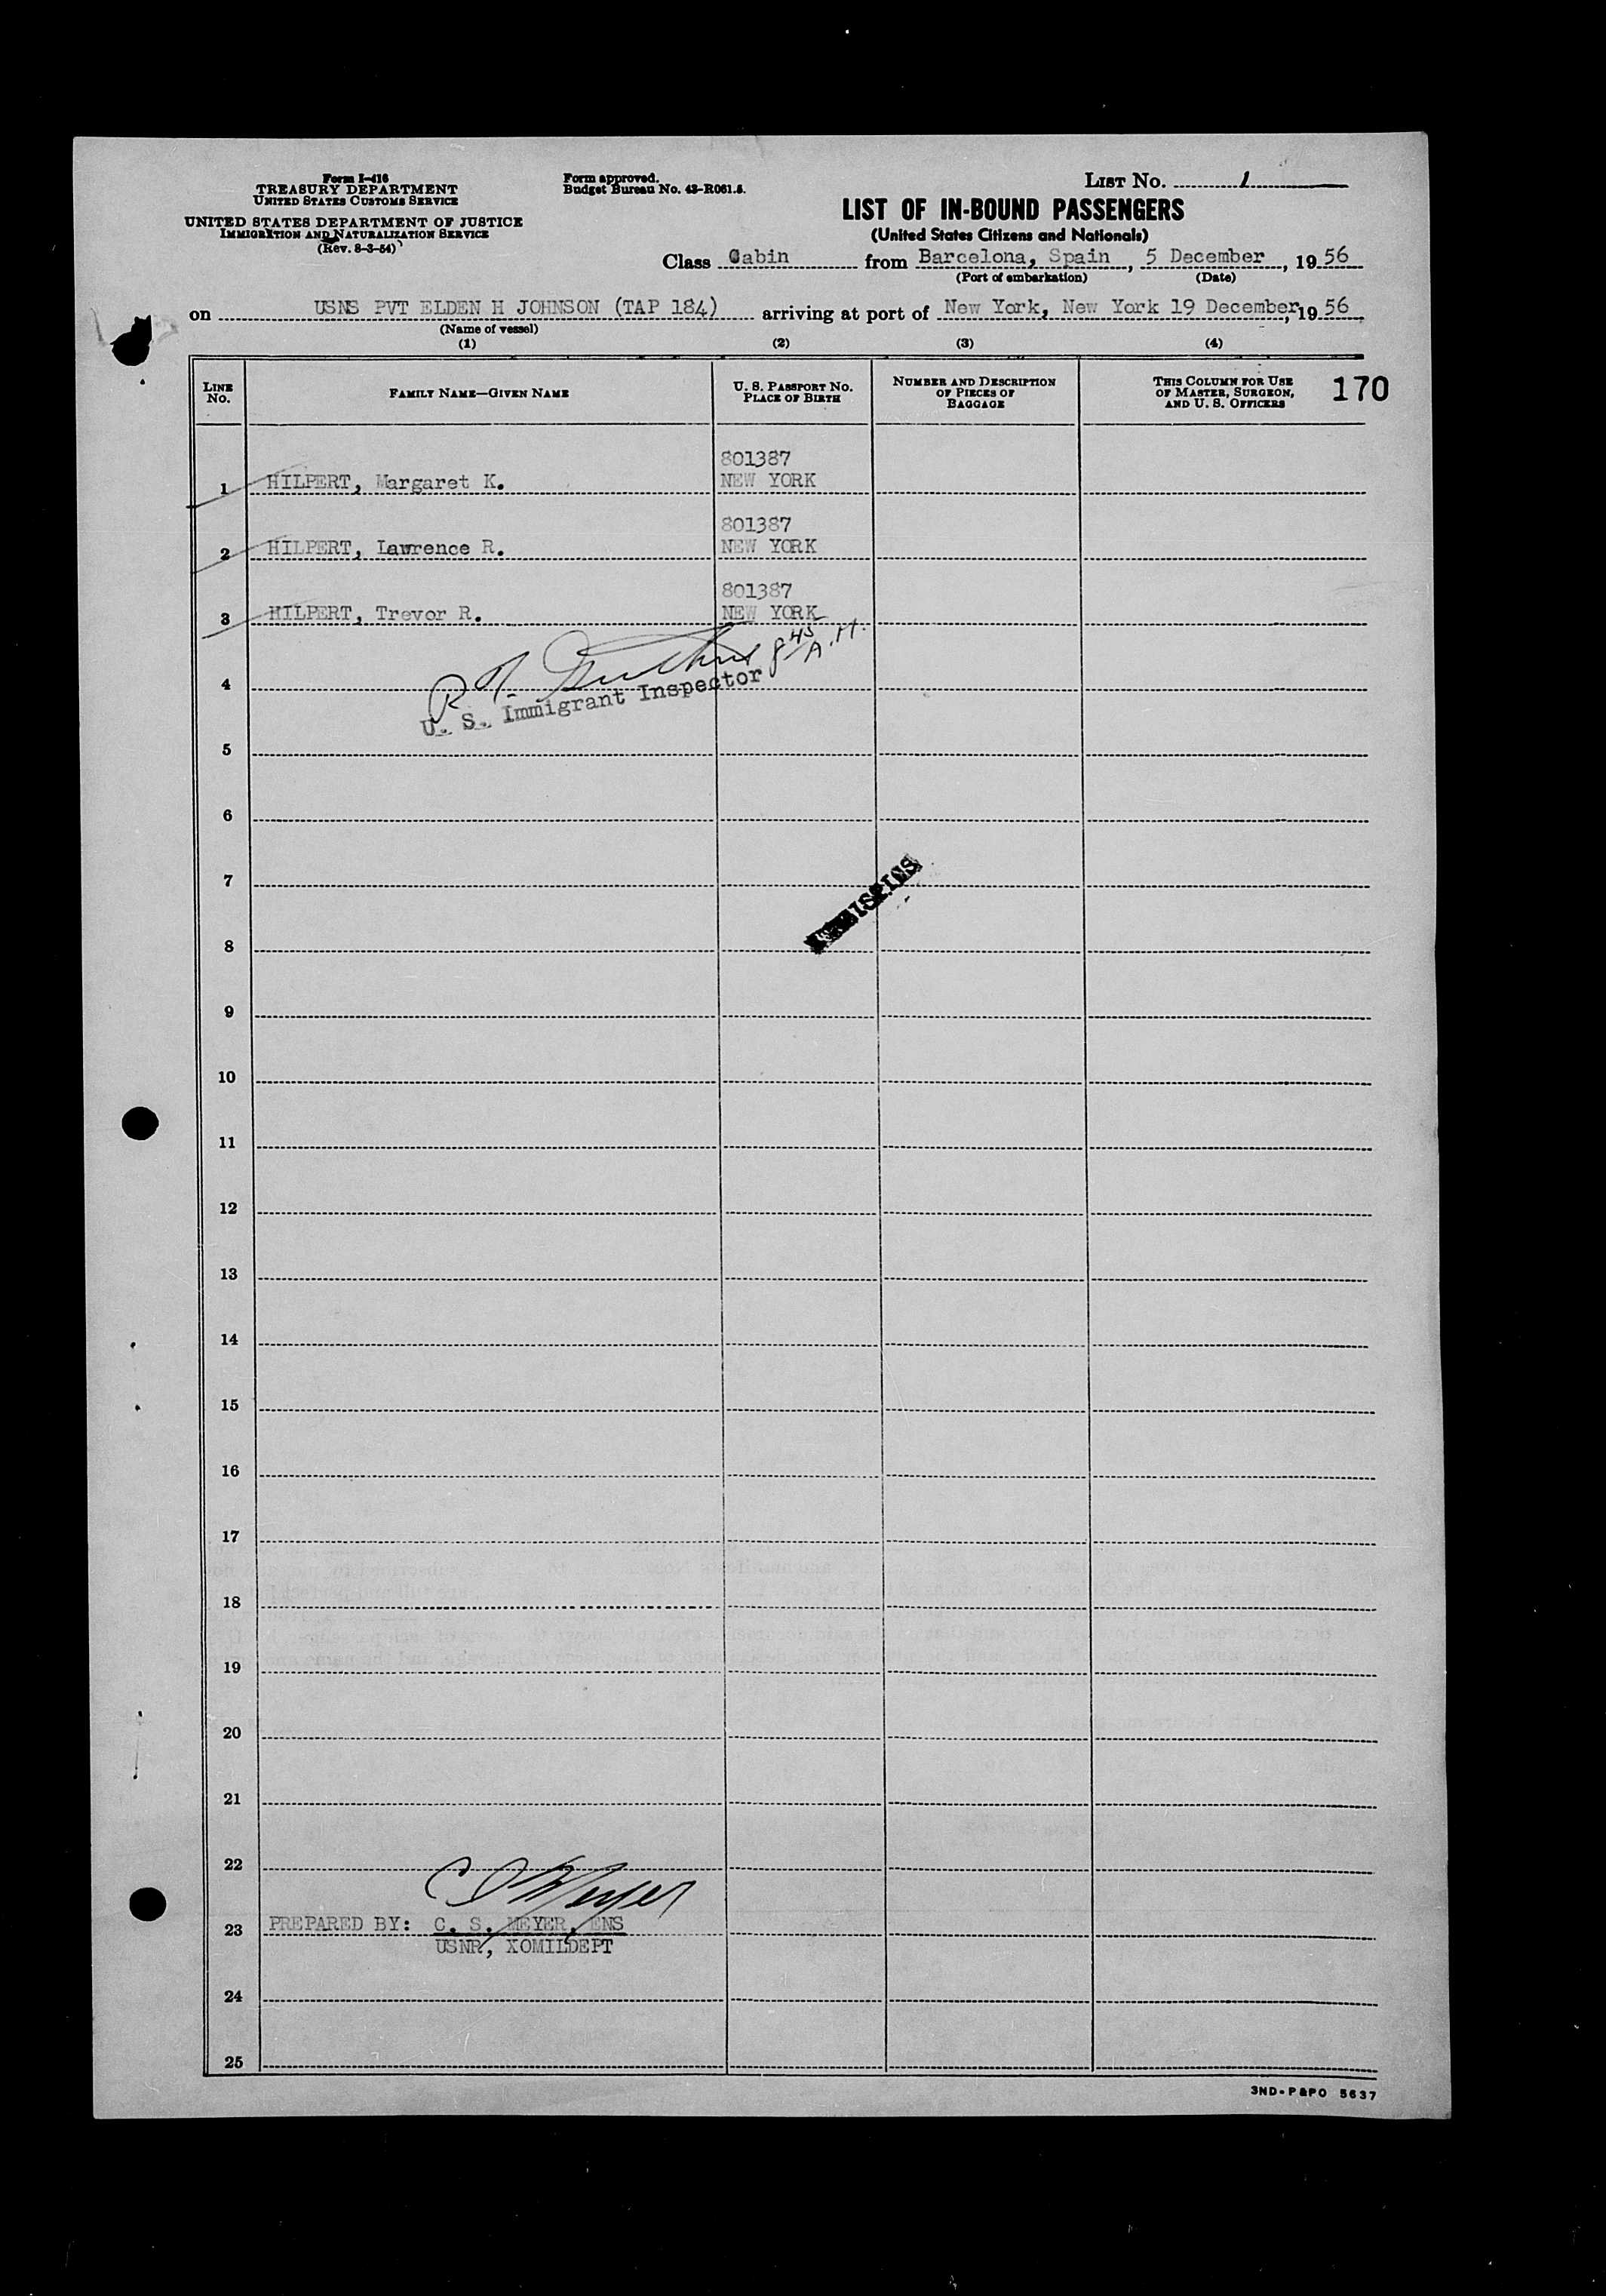 Form I-416
TREASURY DEPARTMENT
UNITED STATES CUSTOMS SERVICE
UNITED STATES DEPARTMENT OF JUSTICE
IMMIGRATION AND NATURALIZATION SERVICE
(Rev. 8-3-54)
Form approved.
Budget Bureau No. 43-R061.5.
LIST NO. 1
LIST OF IN-BOUND PASSENGERS
(United States Citizens and Nationals)
Class Cabin from Barcelona, Spain, 5 December, 19 56
(Port of embarkation) (Date)
on USNS PVT ELDEN H JOHNSON (TAP 184) arriving at port of New York, New York 19 December, 19 56
(Name of vessel)
(1) (2) (3) (4)
LINE NO.
FAMILY NAME—GIVEN NAME
U. S. PASSPORT NO.
PLACE OF BIRTH
NUMBER AND DESCRIPTION
OF PIECES OF
BAGGAGE
THIS COLUMN FOR USE
OF MASTER, SURGEON,
AND U. S. OFFICERS
170
801387
1 HILPERT, Margaret K. NEW YORK
801387
2 HILPERT, Lawrence R. NEW YORK
801387
3 HILPERT, Trevor R. NEW YORK
8 45 A.M.
4
U. S. Immigrant Inspector
5
6
7
8
9
10
11
12
13
14
15
16
17
18
19
20
21
22
C S Meyer
23 PREPARED BY: C. S. MEYER, ENS
USNR, XOMILDEPT
24
25
3ND-P&PO 5637